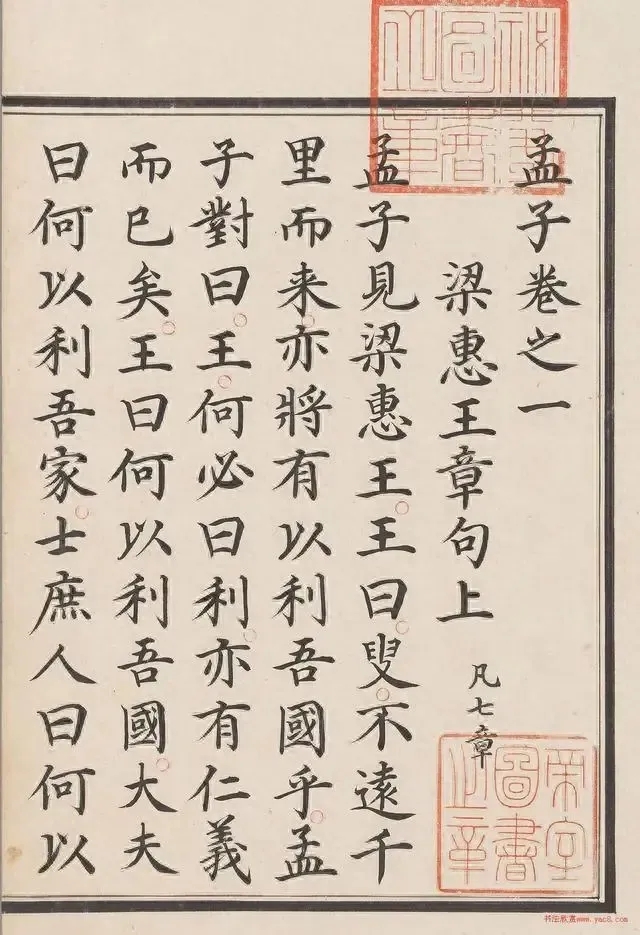 孟子卷之一
梁惠王章句上 凡七章
孟子見梁惠王王曰叟不遠千
里而来亦將有以利吾國乎孟
子對曰王何必曰利亦有仁義
而已矣王曰何以利吾國大夫
曰何以利吾家士庶人曰何以
帝室
圖書
之章
书法欣赏www.yac8.com